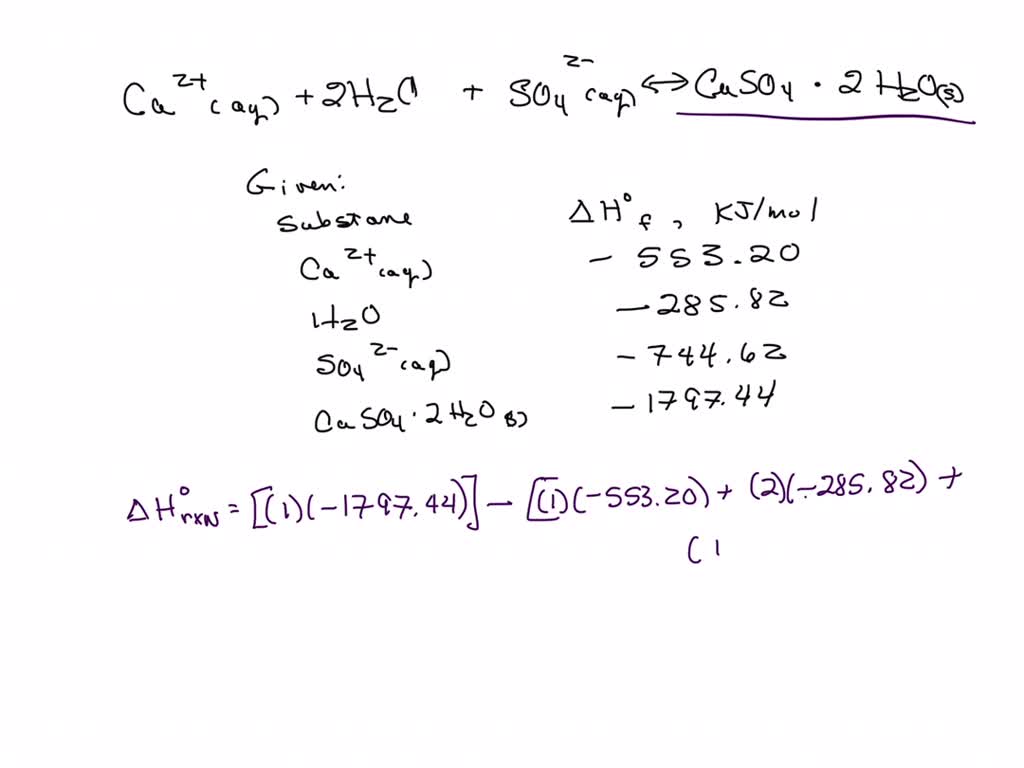 Ca²⁺(aq) + 2H₂O + SO₄²⁻(aq) ⟷ CaSO₄ · 2H₂O(s)
Given:
Substane ΔH°f, KJ/mol
Ca²⁺(aq) -553.20
H₂O -285.82
SO₄²⁻(aq) -744.62
CaSO₄·2H₂O(s) -1797.44
ΔH°rxn = [(1)(-1797.44)] - [(1)(-553.20) + (2)(-285.82) +
(1